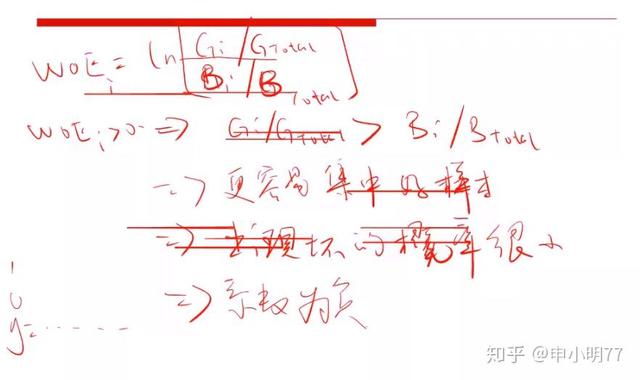 WOE_i = ln[(G_i/G_Total)/(B_i/B_Total)]
WOE_i>0 => G_i/G_Total > B_i/B_Total
=> 更容易集中好样本
=> 出现坏的概率很小
=> 系数为负
1
0
y=......
知乎 @申小明77